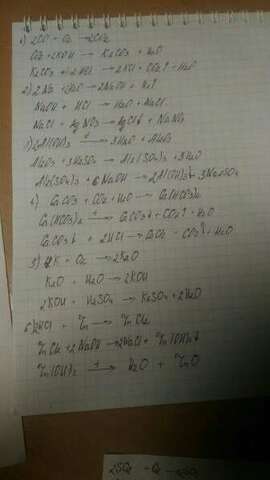 1) 2CO + O₂ → 2CO₂
CO₂ + 2KOH → K₂CO₃ + H₂O
K₂CO₃ + 2HCl → 2KCl + CO₂↑ + H₂O
2) 2Na + 2H₂O → 2NaOH + H₂↑
NaOH + HCl → H₂O + NaCl
NaCl + AgNO₃ → AgCl↓ + NaNO₃
3) 2Al(OH)₃ → 3H₂O + Al₂O₃
Al₂O₃ + 3H₂SO₄ → Al₂(SO₄)₃ + 3H₂O
Al₂(SO₄)₃ + 6NaOH → 2Al(OH)₃↓ + 3Na₂SO₄
4) CaCO₃ + CO₂ + H₂O → Ca(HCO₃)₂
Ca(HCO₃)₂ → CaCO₃↓ + CO₂↑ + H₂O
CaCO₃↓ + 2HCl →
5) 4K + O₂ → 2K₂O
K₂O + H₂O → 2KOH
2KOH + H₂SO₄ → K₂SO₄ + 2H₂O
6) 2HCl + Zn → ZnCl₂
ZnCl₂ + 2NaOH → 2NaCl + Zn(OH)₂↓
Zn(OH)₂ → H₂O + ZnO
2SO₂ + O₂